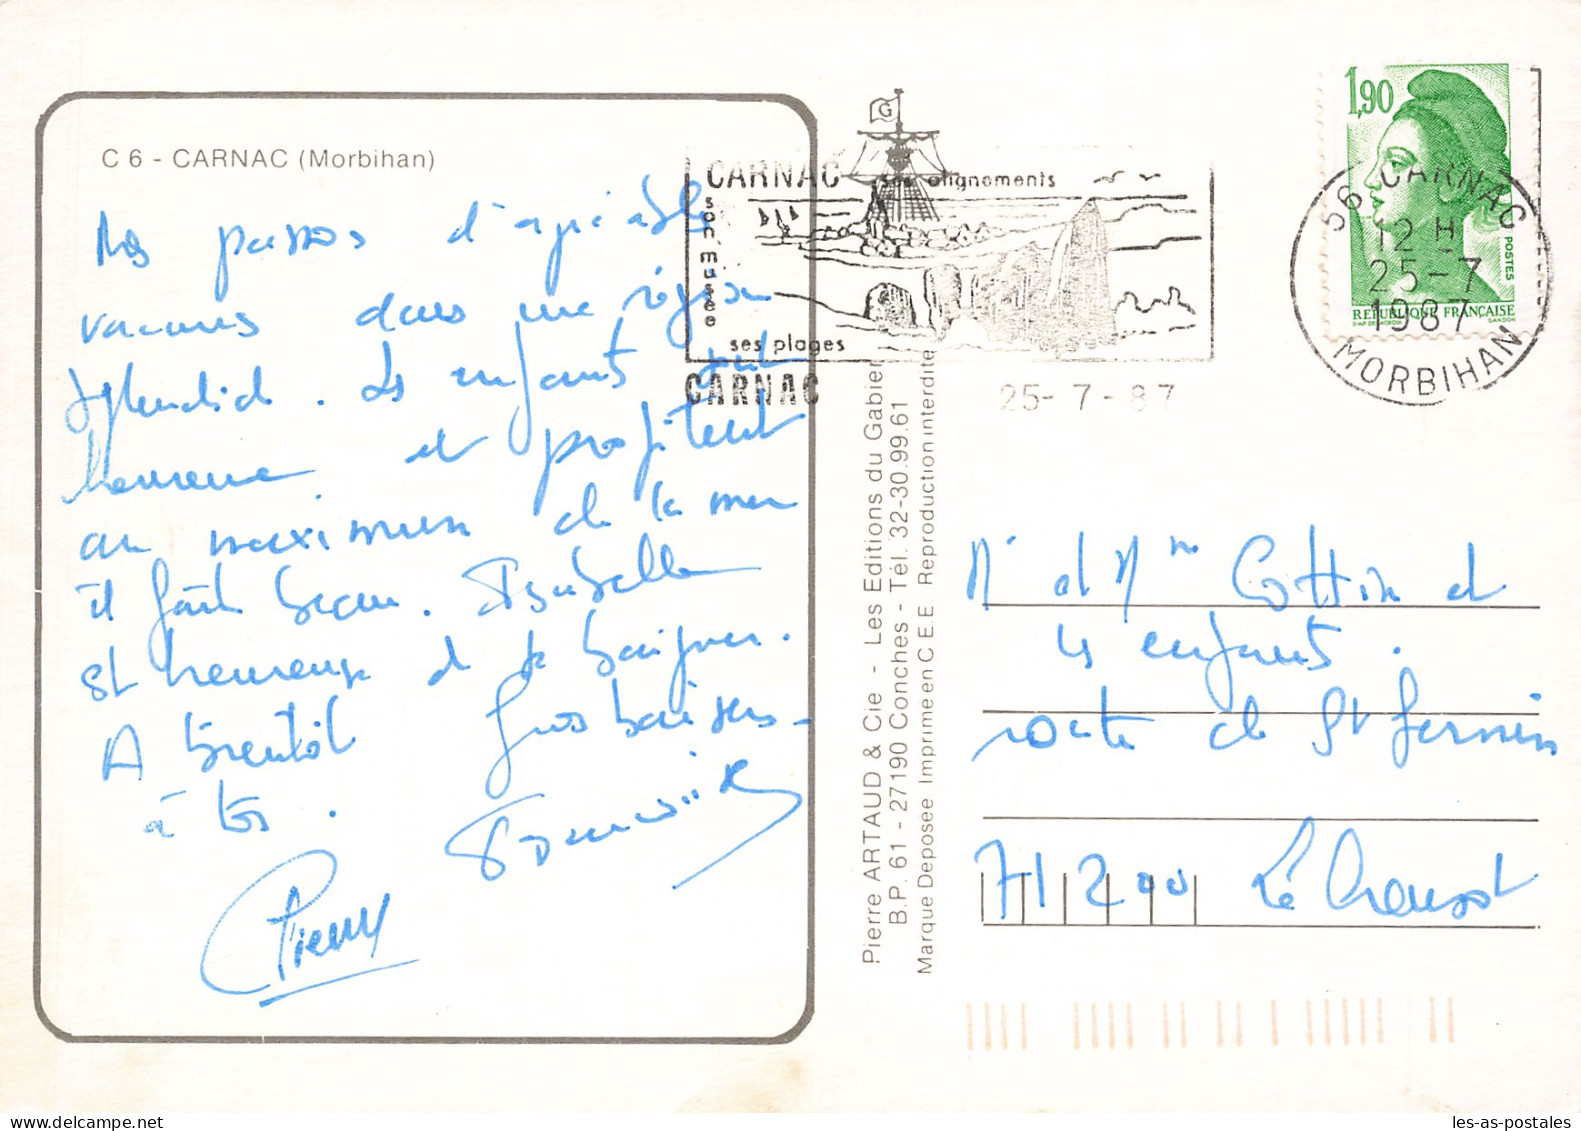 C 6 - CARNAC (Morbihan)
Nous passons d'agréables
vacances dans une région
splendide. Les enfants sont
heureux et profitent
au maximum de la mer
il fait beau. Isabelle
est heureuse de se baigner.
A bientôt Gros baisers
à tous.
Pierre
CARNAC ses alignements
son musée
ses plages
CARNAC
25-7-87
G
1,90
POSTES
REPUBLIQUE FRANÇAISE
D'AP. DELACROIX GANDON
56 CARNAC
12 H
25-7
1987
MORBIHAN
Pierre ARTAUD & Cie - Les Editions du Gabier
B.P. 61 - 27190 Conches - Tél. 32-30.99.61
Marque Deposée Imprimé en C.E.E. Reproduction interdite
Mr et Mme Cottin et
les enfants.
route de St Sernin
71200 Le Creusot
les-as-postales